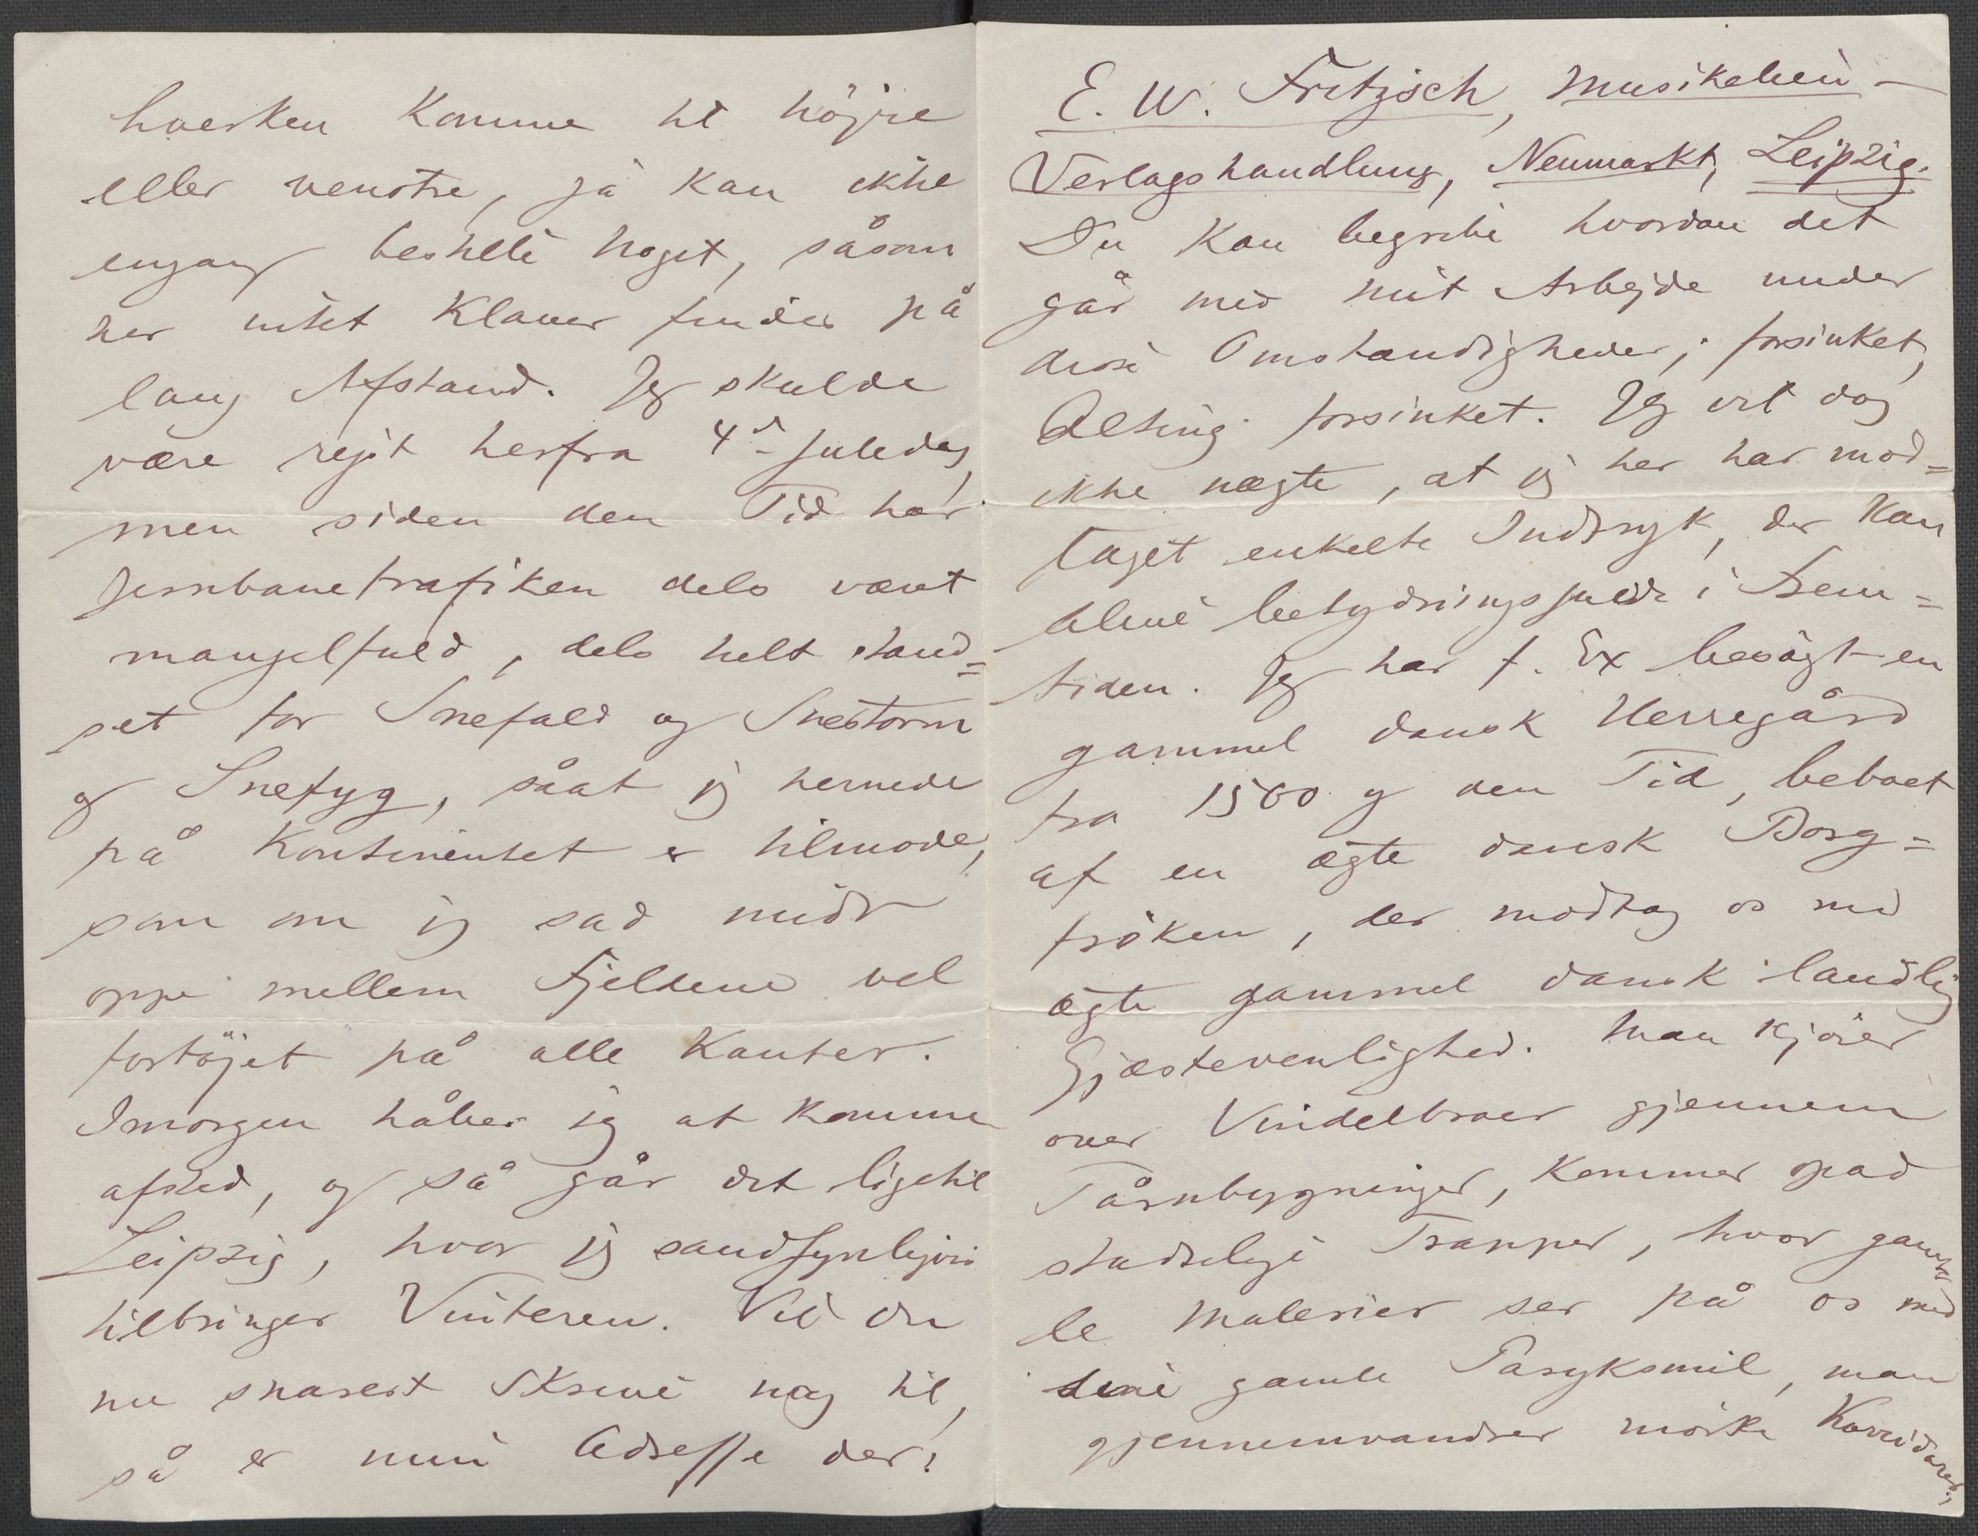 hverken komme til höjre
eller venstre, ja kan ikke
engang bestille noget, såsom
her intet Klaver findes på
lang Afstand. Jeg skulde
være rejst herfra 4de Juledag,
men siden den Tid har
Jernbanetrafiken dels været
mangelfuld, dels helt stand=
set for Snefald og Snestorm
og Snefyg, såat jeg hernede
på Kontinentet er tilmode,
som om jeg sad midt
oppe mellem Fjeldene vel
fortöjet på alle Kanter.
Imorgen håber jeg at komme
afsted, og så går det ligetil
Leipzig, hvor jeg sandsynligvis
tilbringer Vinteren. Vil du
nu snarest skrive mig til,
så er min Adresse der:
E. W. Fritzsch, Musikalien-
Verlagshandlung, Neumarkt, Leipzig.
Du kan begribe hvordan det
går med mit Arbejde under
disse Omstændigheder; forsinket,
Alting forsinket. Jeg vil dog
ikke nægte, at jeg her har mod=
taget enkelte Indtryk, der kan
blive betydningsfulde i Frem=
tiden. Jeg har f. Ex besögt en
gammel dansk Herregård
fra 1500 og den Tid, beboet
af en ægte dansk Borg=
fröken, der modtog os med
ægte gammel dansk landlig
Gjæstevenlighed. Man kjörer
over Vindelbroer gjennem
Tårnbygninger, kommer opad
stadselige Trapper, hvor gam
le Malerier ser på os med
sine gamle Parykmil, man
gjennemvandrer mörke Korridorer,